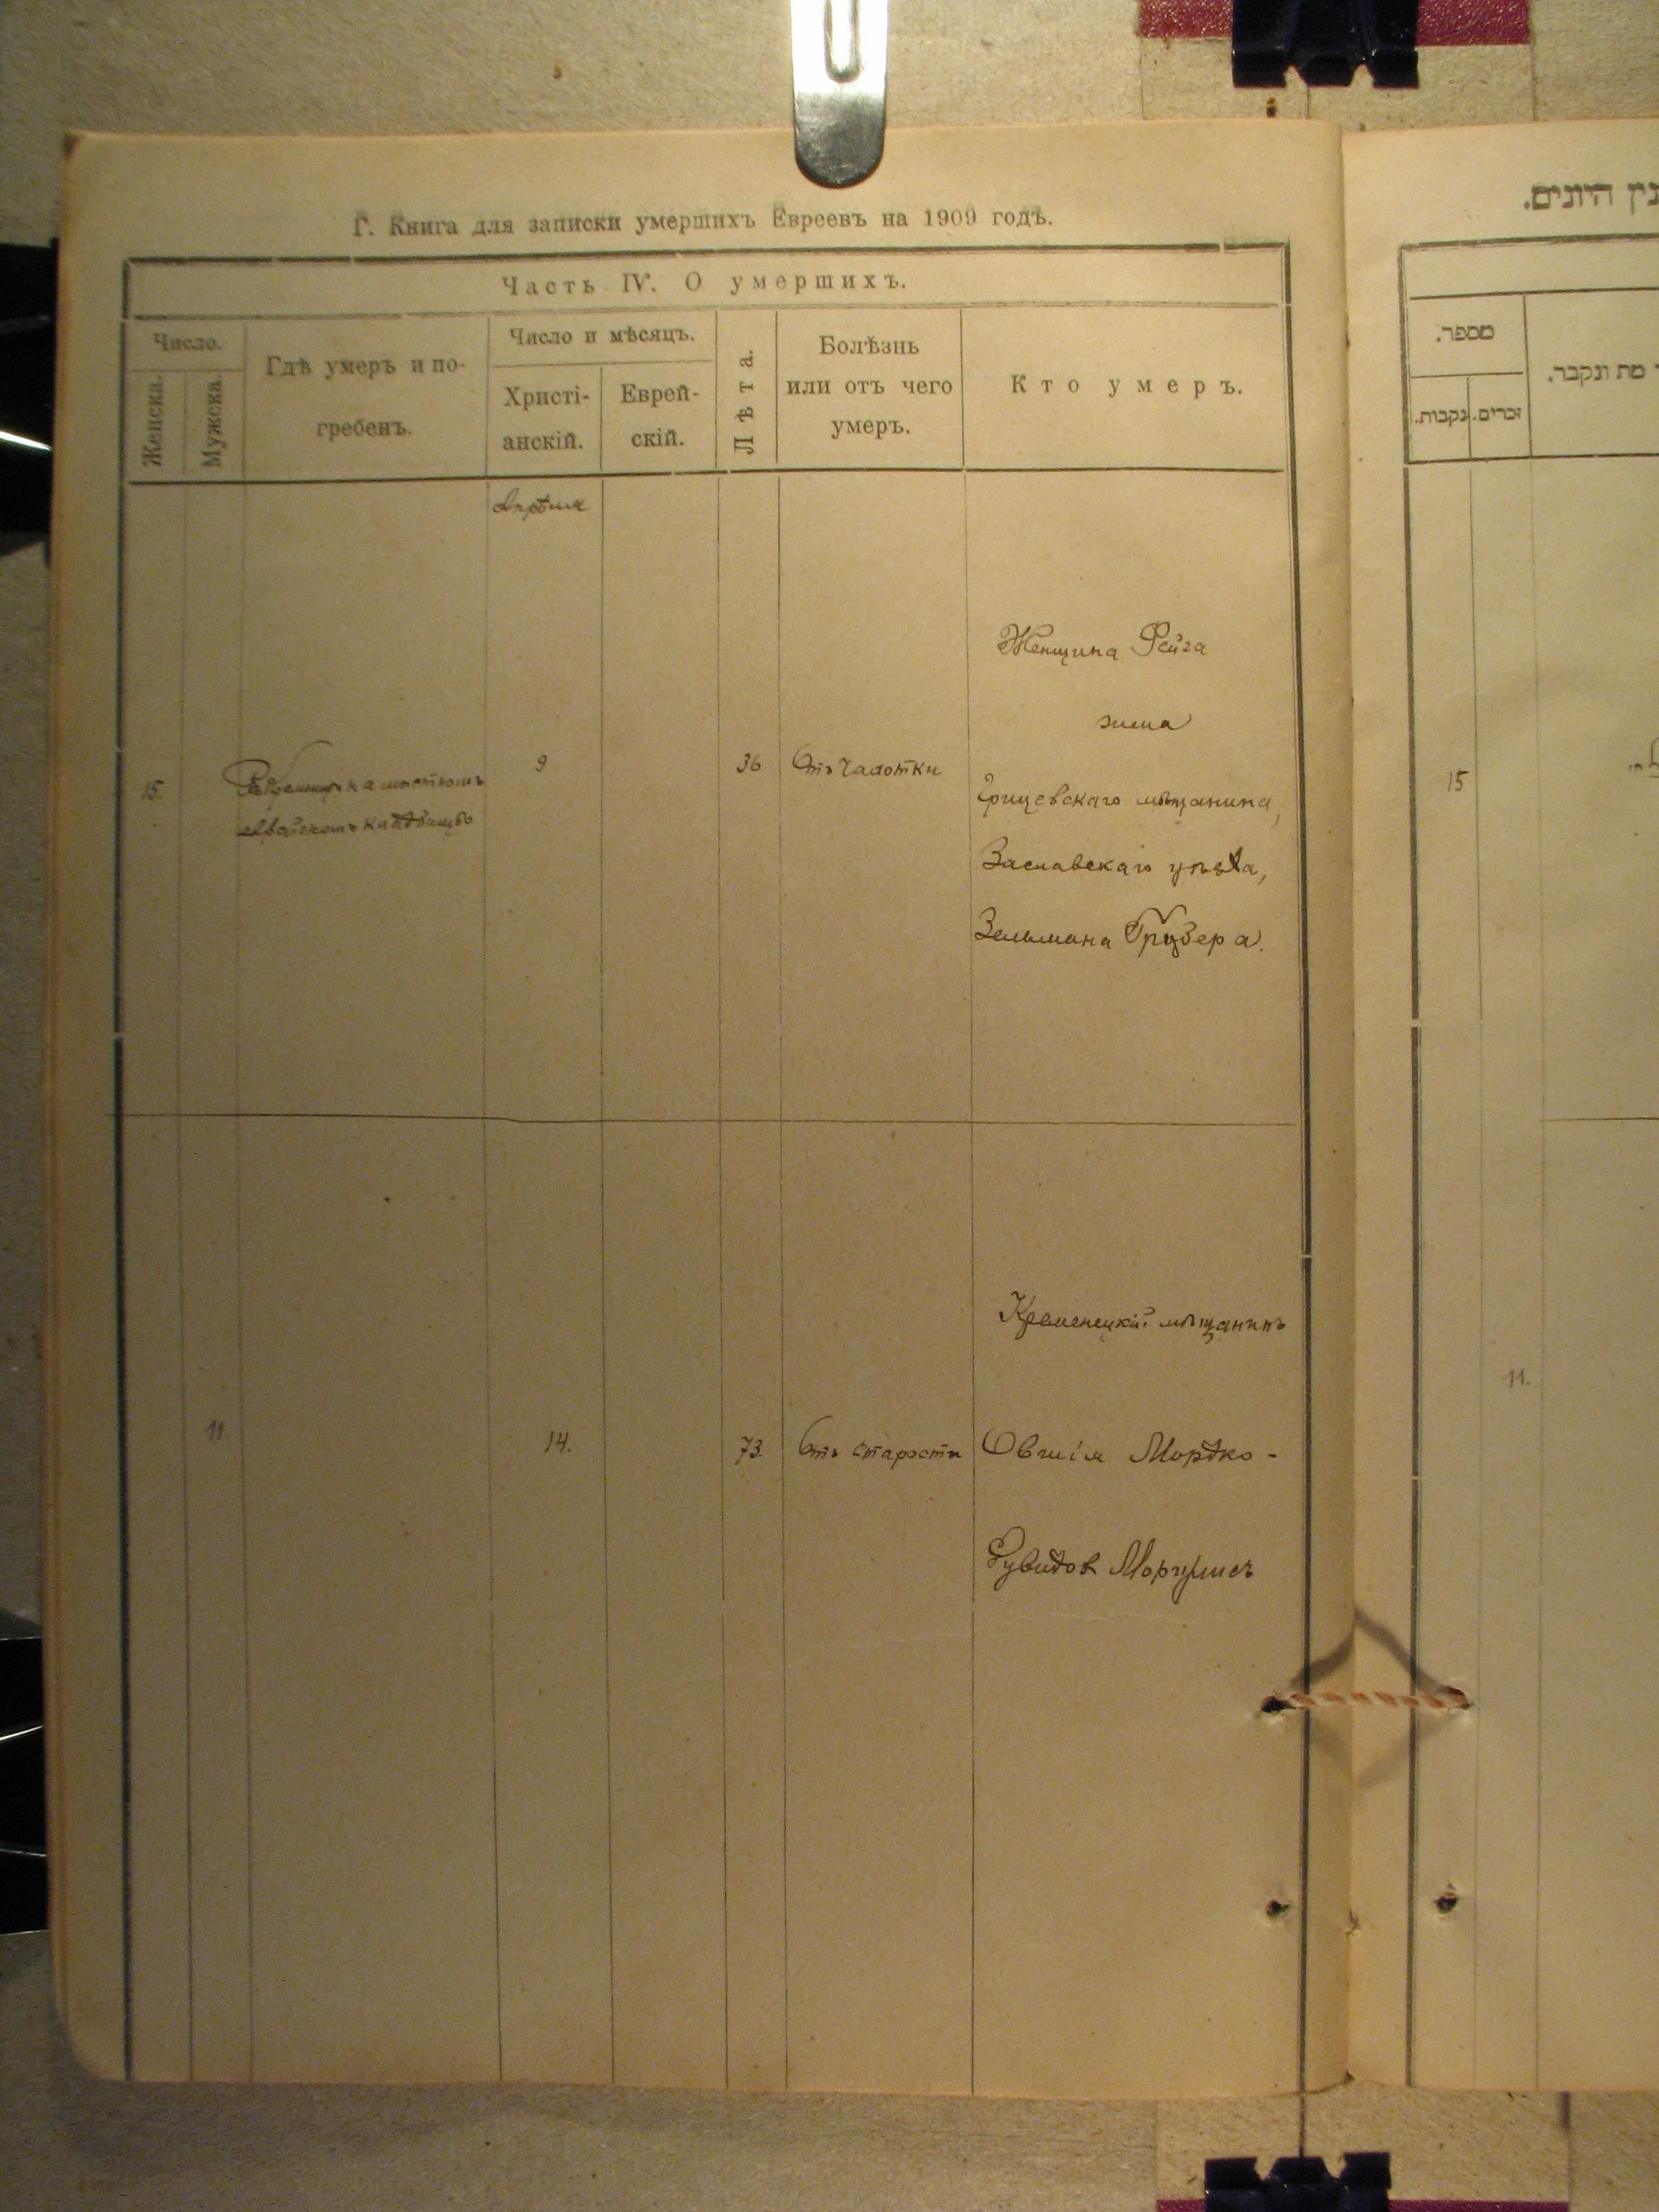 Г. Книга для записки умершихъ Евреевъ на 1909 годъ.
Часть IV. О умершихъ.
Число.
Женска.
Мужска.
Гдѣ умеръ и по-
гребенъ.
Число и мѣсяцъ.
Христі-
анскій.
Еврей-
скій.
Лѣта.
Болѣзнь
или отъ чего
умеръ.
Кто умеръ.
Апрѣля
15.
на мѣстномъ
еврейскомъ кладбищѣ
9
36
Отъ чахотки
Женщина Рейза
жена
Грицевскаго мѣщанина,
Заславскаго уѣзда,
Зельмана Грубера.
11.
14.
73.
Отъ старости
Кременецкій мѣщанинъ
Овшія Мордко-
Рувидов Маргулисъ
מספר.
נקבות.
זכרים.
מת ונקבר.
15
11.